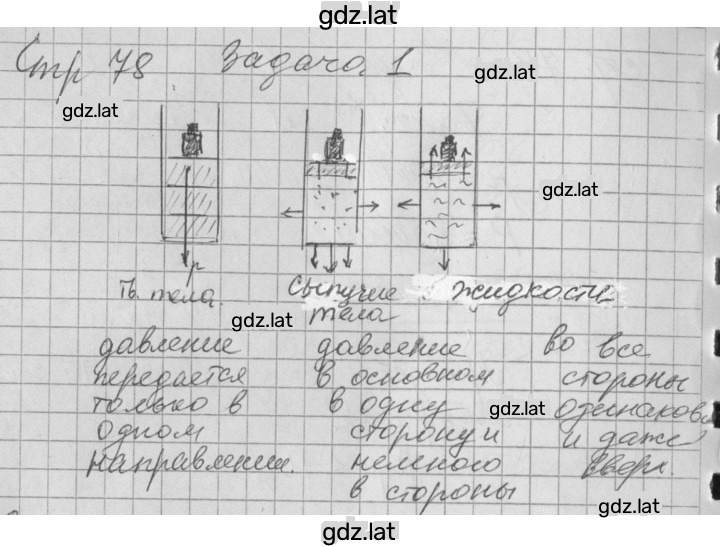 gdz.lat
Стр 78 Задача 1
gdz.lat
gdz.lat
gdz.lat
p
Тв. тела.
Сыпучие тела
жидкости
gdz.lat
давление
передается
только в
одном
направлении.
давление
в основном
в одну
сторону и
немного
в стороны
во все
стороны
одинаково
и даже
вверх.
gdz.lat
gdz.lat
gdz.lat